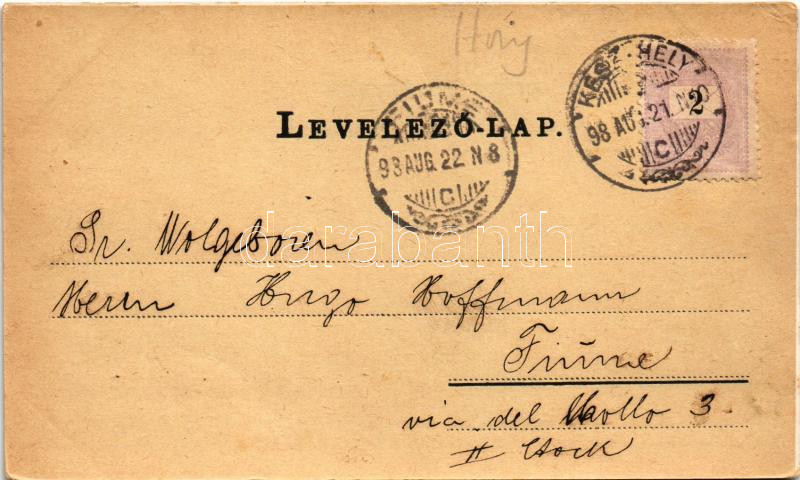 LEVELEZŐ-LAP.
KESZTHELY
98 AUG. 21. N
C
2
FIUME
98 AUG. 22 N 8
C
Sr. Wolgeboren
darabanth
Herrn Hugo Hoffmann
Fiume
via del Mollo 3
II Stock